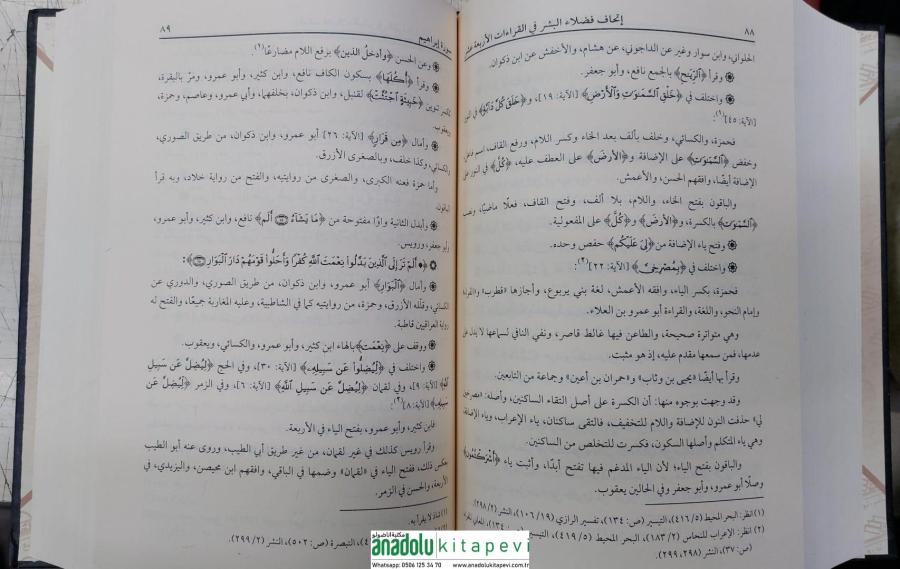 ٨٨
إتحاف فضلاء البشر في القراءات الأربعة عشر
الحلواني، وابن سوار وغير عن الداجوني، عن هشام، والأخفش عن ابن ذكوان.
وقرأ ﴿ٱلرِّيَٰحِ﴾ بالجمع نافع، وأبو جعفر.
واختلف في ﴿خَلَقَ ٱلسَّمَٰوَٰتِ وَٱلْأَرْضَ﴾ [الآية: ١٩]، و﴿خَلَقَ كُلَّ دَآبَّةٍ﴾ في النور
[الآية: ٤٥](١):
فحمزة، والكسائي، وخلف بألف بعد الخاء وكسر اللام، ورفع القاف، اسم فاعل،
وخفض ﴿ٱلسَّمَٰوَٰتِ﴾ على الإضافة و﴿الأرضِ﴾ على العطف عليه، ﴿كُلِّ﴾ في النور على
الإضافة أيضًا، وافقهم الحسن، والأعمش.
والباقون بفتح الخاء، واللام، بلا ألف، وفتح القاف، فعلًا ماضيًا، ونصب
﴿السَّمَٰوَٰتِ﴾ بالكسرة، و﴿الأرضَ﴾ و﴿كُلَّ﴾ على المفعولية.
وفتح ياء الإضافة من ﴿لِيَ عَلَيْكُم﴾ حفص وحده.
واختلف في ﴿بِمُصْرِخِيَّ﴾ [الآية: ٢٢](٢):
فحمزة، بكسر الياء، وافقه الأعمش، لغة بني يربوع، وأجازها «قطرب» والفراء
وإمام النحو، واللغة، والقراءة أبو عمرو بن العلاء.
وهي متواترة صحيحة، والطاعن فيها غالط قاصر، ونفي النافي لسماعها لا يدل على
عدمها، فمن سمعها مقدم عليه، إذ هو مثبت.
وقرأ بها أيضًا «يحيى بن وثاب» و«حمران بن أعين» وجماعة من التابعين.
وقد وجهت بوجوه منها: أن الكسرة على أصل التقاء الساكنين، وأصله: «مصرخين
لي» حذفت النون للإضافة واللام للتخفيف، فالتقى ساكنان، ياء الإعراب، وياء الإضافة،
وهي ياء المتكلم وأصلها السكون، فكسرت للتخلص من الساكنين.
والباقون بفتح الياء؛ لأن الياء المدغم فيها تفتح أبدًا، وأثبت ياء ﴿أَشْرَكْتُمُونِ﴾
وصلًا أبو عمرو، وأبو جعفر وفي الحالين يعقوب.
(١) انظر: البحر المحيط (٤١٦/٥)، التيسير (ص: ١٣٤)، تفسير الرازي (١٠٦/١٩)، النشر (٢٩٨/٢).
(٢) انظر: الإعراب للنحاس (١٨٣/٢)، البحر المحيط (٤١٩/٥)، التيسير (ص: ١٣٤)،
(ص: ٣٧)، النشر (٢٩٨، ٢٩٩).
سورة إبراهيم
٨٩
وعن الحسن ﴿وأدخلُ الذين﴾ برفع اللام مضارعًا(١).
وقرأ ﴿أُكْلَهَا﴾ بسكون الكاف نافع، وابن كثير، وأبو عمرو، ومرّ بالبقرة،
كسر تنوين ﴿خَبِيثَةٍ ٱجْتُثَّتْ﴾ لقنبل، وابن ذكوان، بخلفهما، وأبي عمرو، وعاصم، وحمزة،
ويعقوب.
وأمال ﴿مِن قَرَارٍ﴾ [الآية: ٢٦] أبو عمرو، وابن ذكوان، من طريق الصوري،
والكسائي، وكذا خلف، وبالصغرى الأزرق.
وأما حمزة فعنه الكبرى، والصغرى من روايتيه، والفتح من رواية خلاد، وبه قرأ
الباقون.
وأبدل الثانية واوًا مفتوحة من ﴿مَا يَشَآءُ أَلَمْ﴾ نافع، وابن كثير، وأبو عمرو،
وأبو جعفر، ورويس.
﴿أَلَمْ تَرَ إِلَى ٱلَّذِينَ بَدَّلُوا۟ نِعْمَتَ ٱللَّهِ كُفْرًا وَأَحَلُّوا۟ قَوْمَهُمْ دَارَ ٱلْبَوَارِ﴾:
وأمال ﴿ٱلْبَوَارِ﴾ أبو عمرو، وابن ذكوان، من طريق الصوري، والدوري عن
الكسائي، وقلّله الأزرق، وحمزة، من روايتيه كما في الشاطبية، وعليه المغاربة جميعًا، والفتح له
رواية العراقيين قاطبة.
ووقف على ﴿نِعْمَتَ﴾ بالهاء ابن كثير، وأبو عمرو، والكسائي، ويعقوب.
واختلف في ﴿لِيُضِلُّوا۟ عَن سَبِيلِهِۦ﴾ [الآية: ٣٠]، وفي الحج ﴿لِيُضِلَّ عَن سَبِيلِ
ٱللَّهِ﴾ [الآية: ٩]، وفي لقمان ﴿لِيُضِلَّ عَن سَبِيلِ ٱللَّهِ﴾ [الآية: ٦]، وفي الزمر ﴿لِيُضِلَّ عَن
سَبِيلِهِ﴾ [الآية: ٨](٢):
فابن كثير، وأبو عمرو، بفتح الياء في الأربعة.
وقرأ رويس كذلك في غير لقمان، من غير طريق أبي الطيب، وروى عنه أبو الطيب
عكس ذلك، ففتح الياء في «لقمان» وضمها في الباقي، وافقهم ابن محيصن، واليزيدي، في
الأربعة، والحسن في الزمر.
(١) شاذ لا يقرأ به.
التبصرة (ص: ٥٠٢)، النشر (٢٩٩/٢).
مكتبة الأناضول
anadolu kitapevi
Whatsapp: 0506 125 34 70 www.anadolukitapevi.com.tr